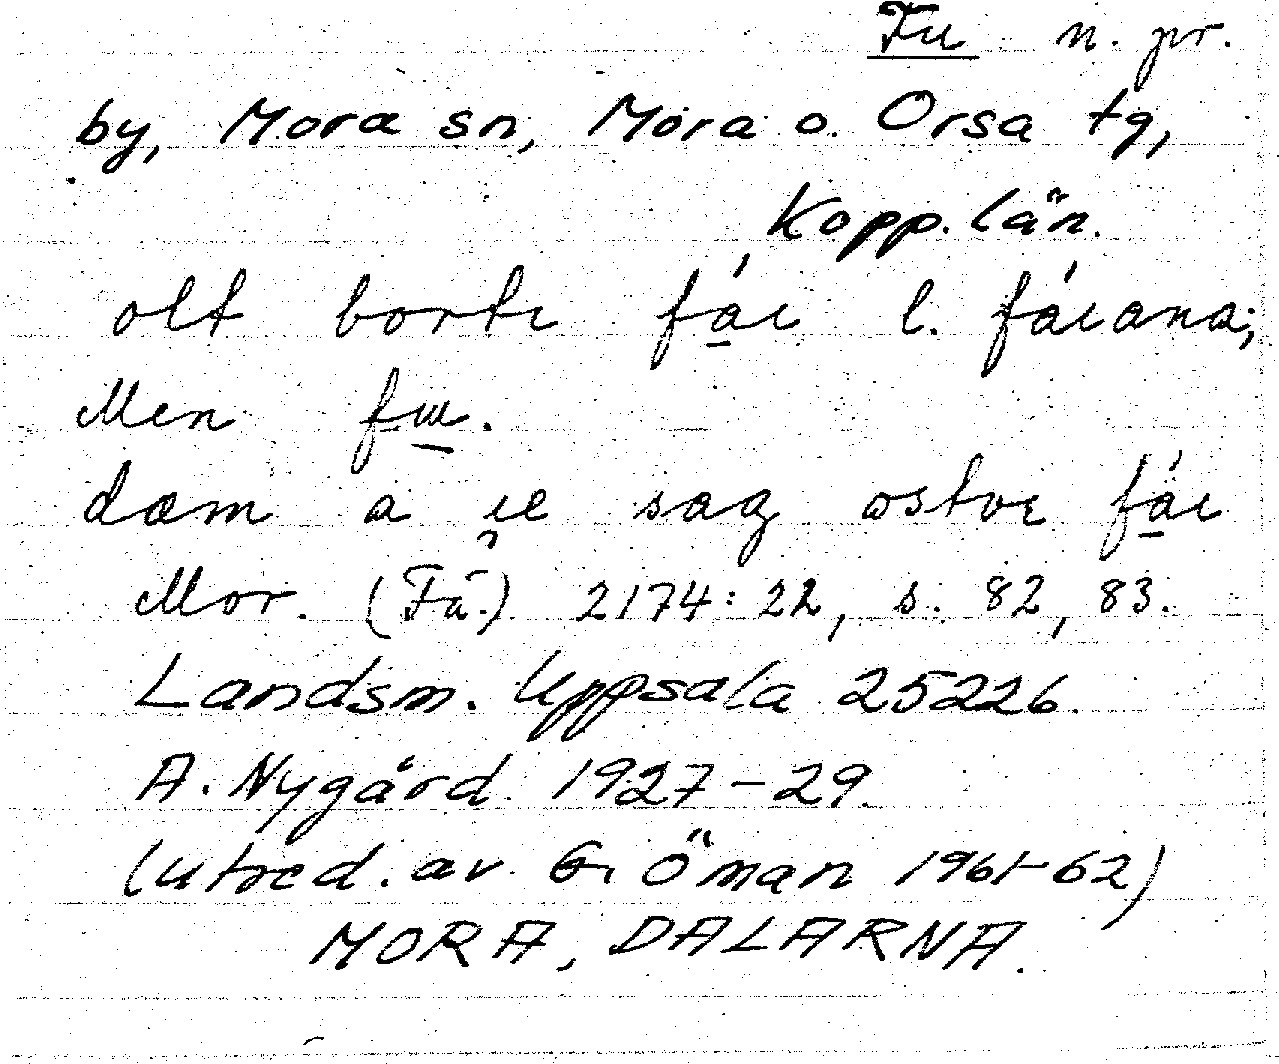 Fu n. pr.
by, Mora sn, Mora o. Orsa tg,
Kopp. län.
olt borti fa̲i l. fáiana;
Men fu̲.
dæm a ie sag ostvi fa̲i
Mor. (Fu.) 2174:22, s. 82, 83.
Landsm. Uppsala 25226.
A. Nygård 1927-29.
(utred. av G. Öman 1961-62)
MORA, DALARNA.